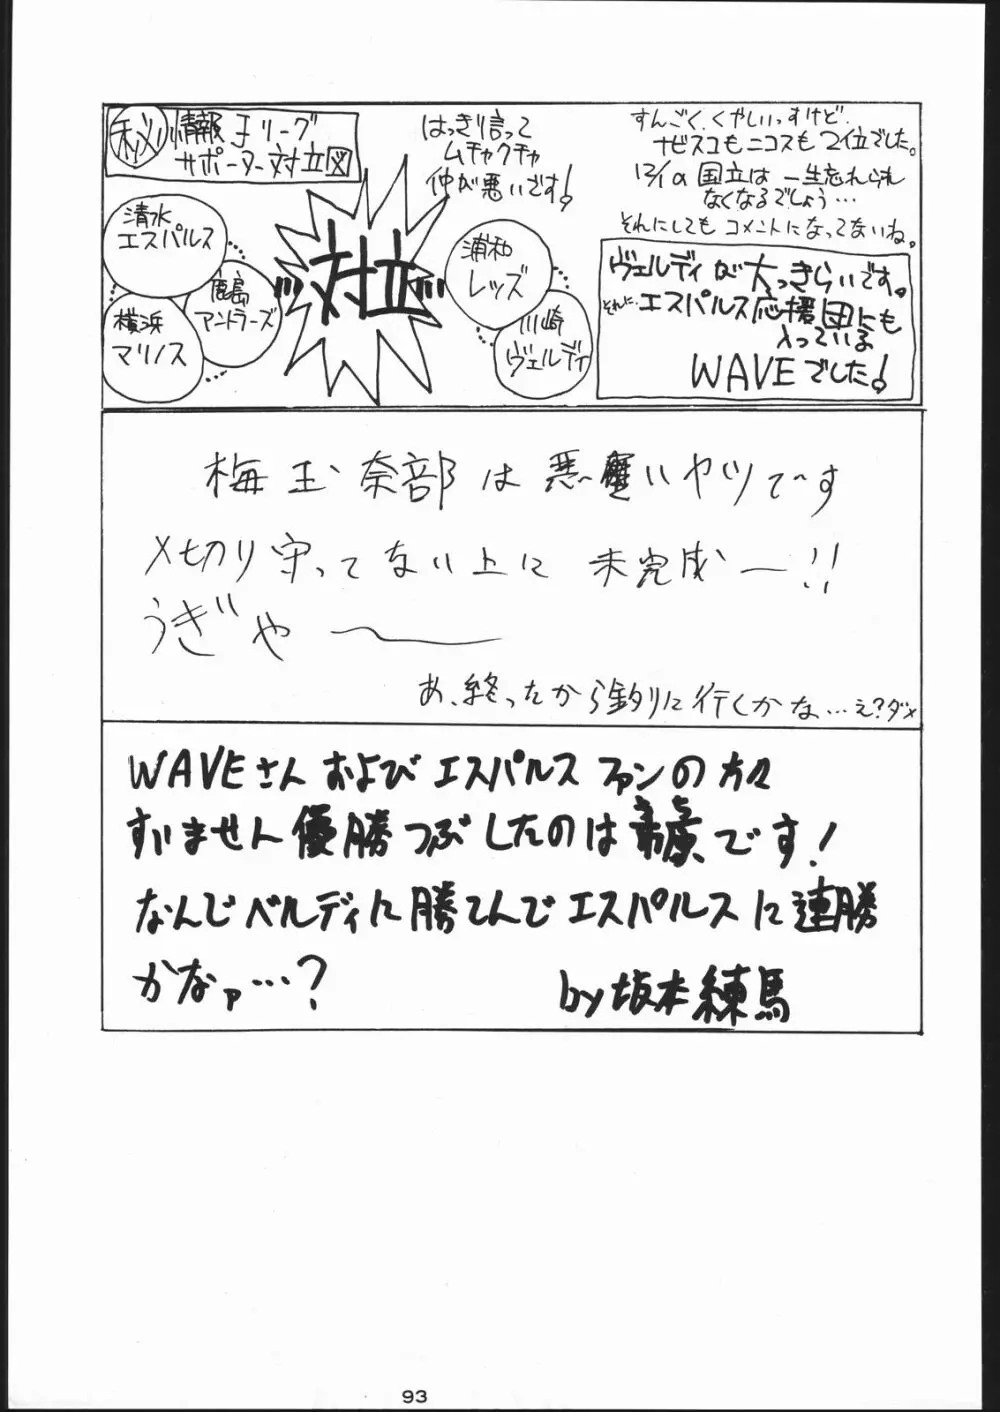 ㊙情報Jリーグ
サポーター対立図
清水
エスパルス
鹿島
アントラーズ
横浜
マリノス
対立
はっきり言って
ムチャクチャ
仲が悪いです!
浦和
レッズ
川崎
ヴェルディ
すんごく、くやしいっすけど、
ナビスコもニコスも2位でした。
12/1の国立は一生忘れられ
なくなるでしょう…
それにしてもコメントになってないね。
ヴェルディが大っきらいです。
それに、エスパルス応援団にも
入っている
WAVEでした!
梅玉奈部は悪いヤツです
〆切り守ってない上に未完成ー!!
うぎ"や〜
あ、終ったから釣りに行くかな…え?ダメ
WAVEさんおよびエスパルスファンの方々
すいません優勝つぶしたのは です!
なんでベルディに勝てんでエスパルスに連勝
かなァ…?
by坂本練馬
93